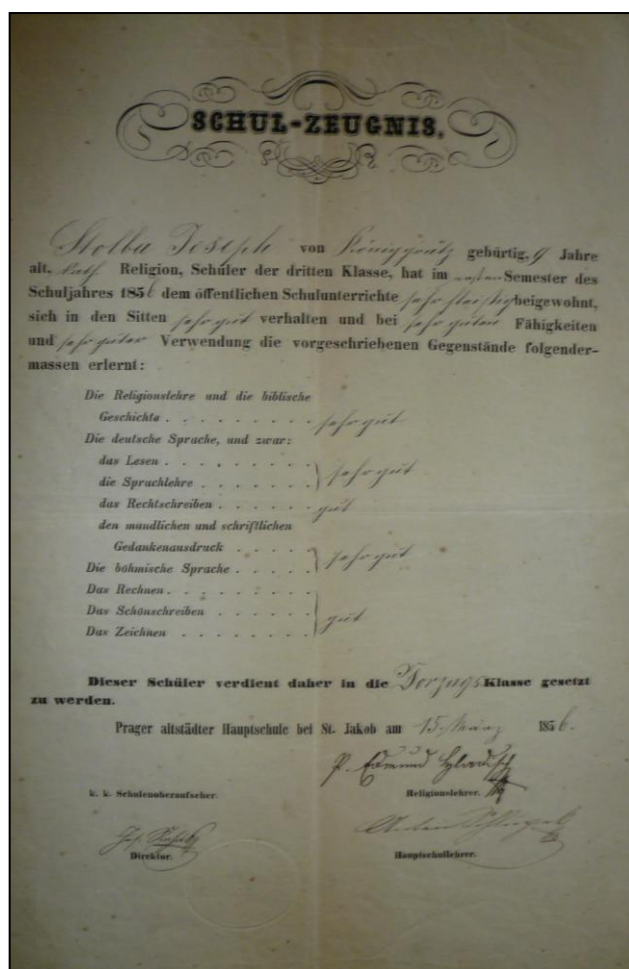 SCHUL-ZEUGNIS.
Stolba Joseph von Königgrätz gebürtig, 9 Jahre
alt, kath Religion, Schüler der dritten Klasse, hat im ersten Semester des
Schuljahres 1856 dem öffentlichen Schulunterrichte sehr fleissig beigewohnt,
sich in den Sitten sehr gut verhalten und bei sehr guten Fähigkeiten
und sehr guter Verwendung die vorgeschriebenen Gegenstände folgender-
massen erlernt:
Die Religionslehre und die biblische
Geschichte . . . . . . . . . sehr gut
Die deutsche Sprache, und zwar:
das Lesen . . . . . . . .
die Sprachlehre . . . . . . sehr gut
das Rechtschreiben . . . . . gut
den mundlichen und schriftlichen
Gedankenausdruck . . . .
Die böhmische Sprache . . . . sehr gut
Das Rechnen . . . . . . . .
Das Schönschreiben . . . . . gut
Das Zeichnen . . . . . . .
Dieser Schüler verdient daher in die Vorzugs Klasse gesetzt
zu werden.
Prager altstädter Hauptschule bei St. Jakob am 15. März 1856.
P. Edmund
k. k. Schulenoberaufseher. Religionslehrer.
Jos. Anton
Direktor. Hauptschullehrer.